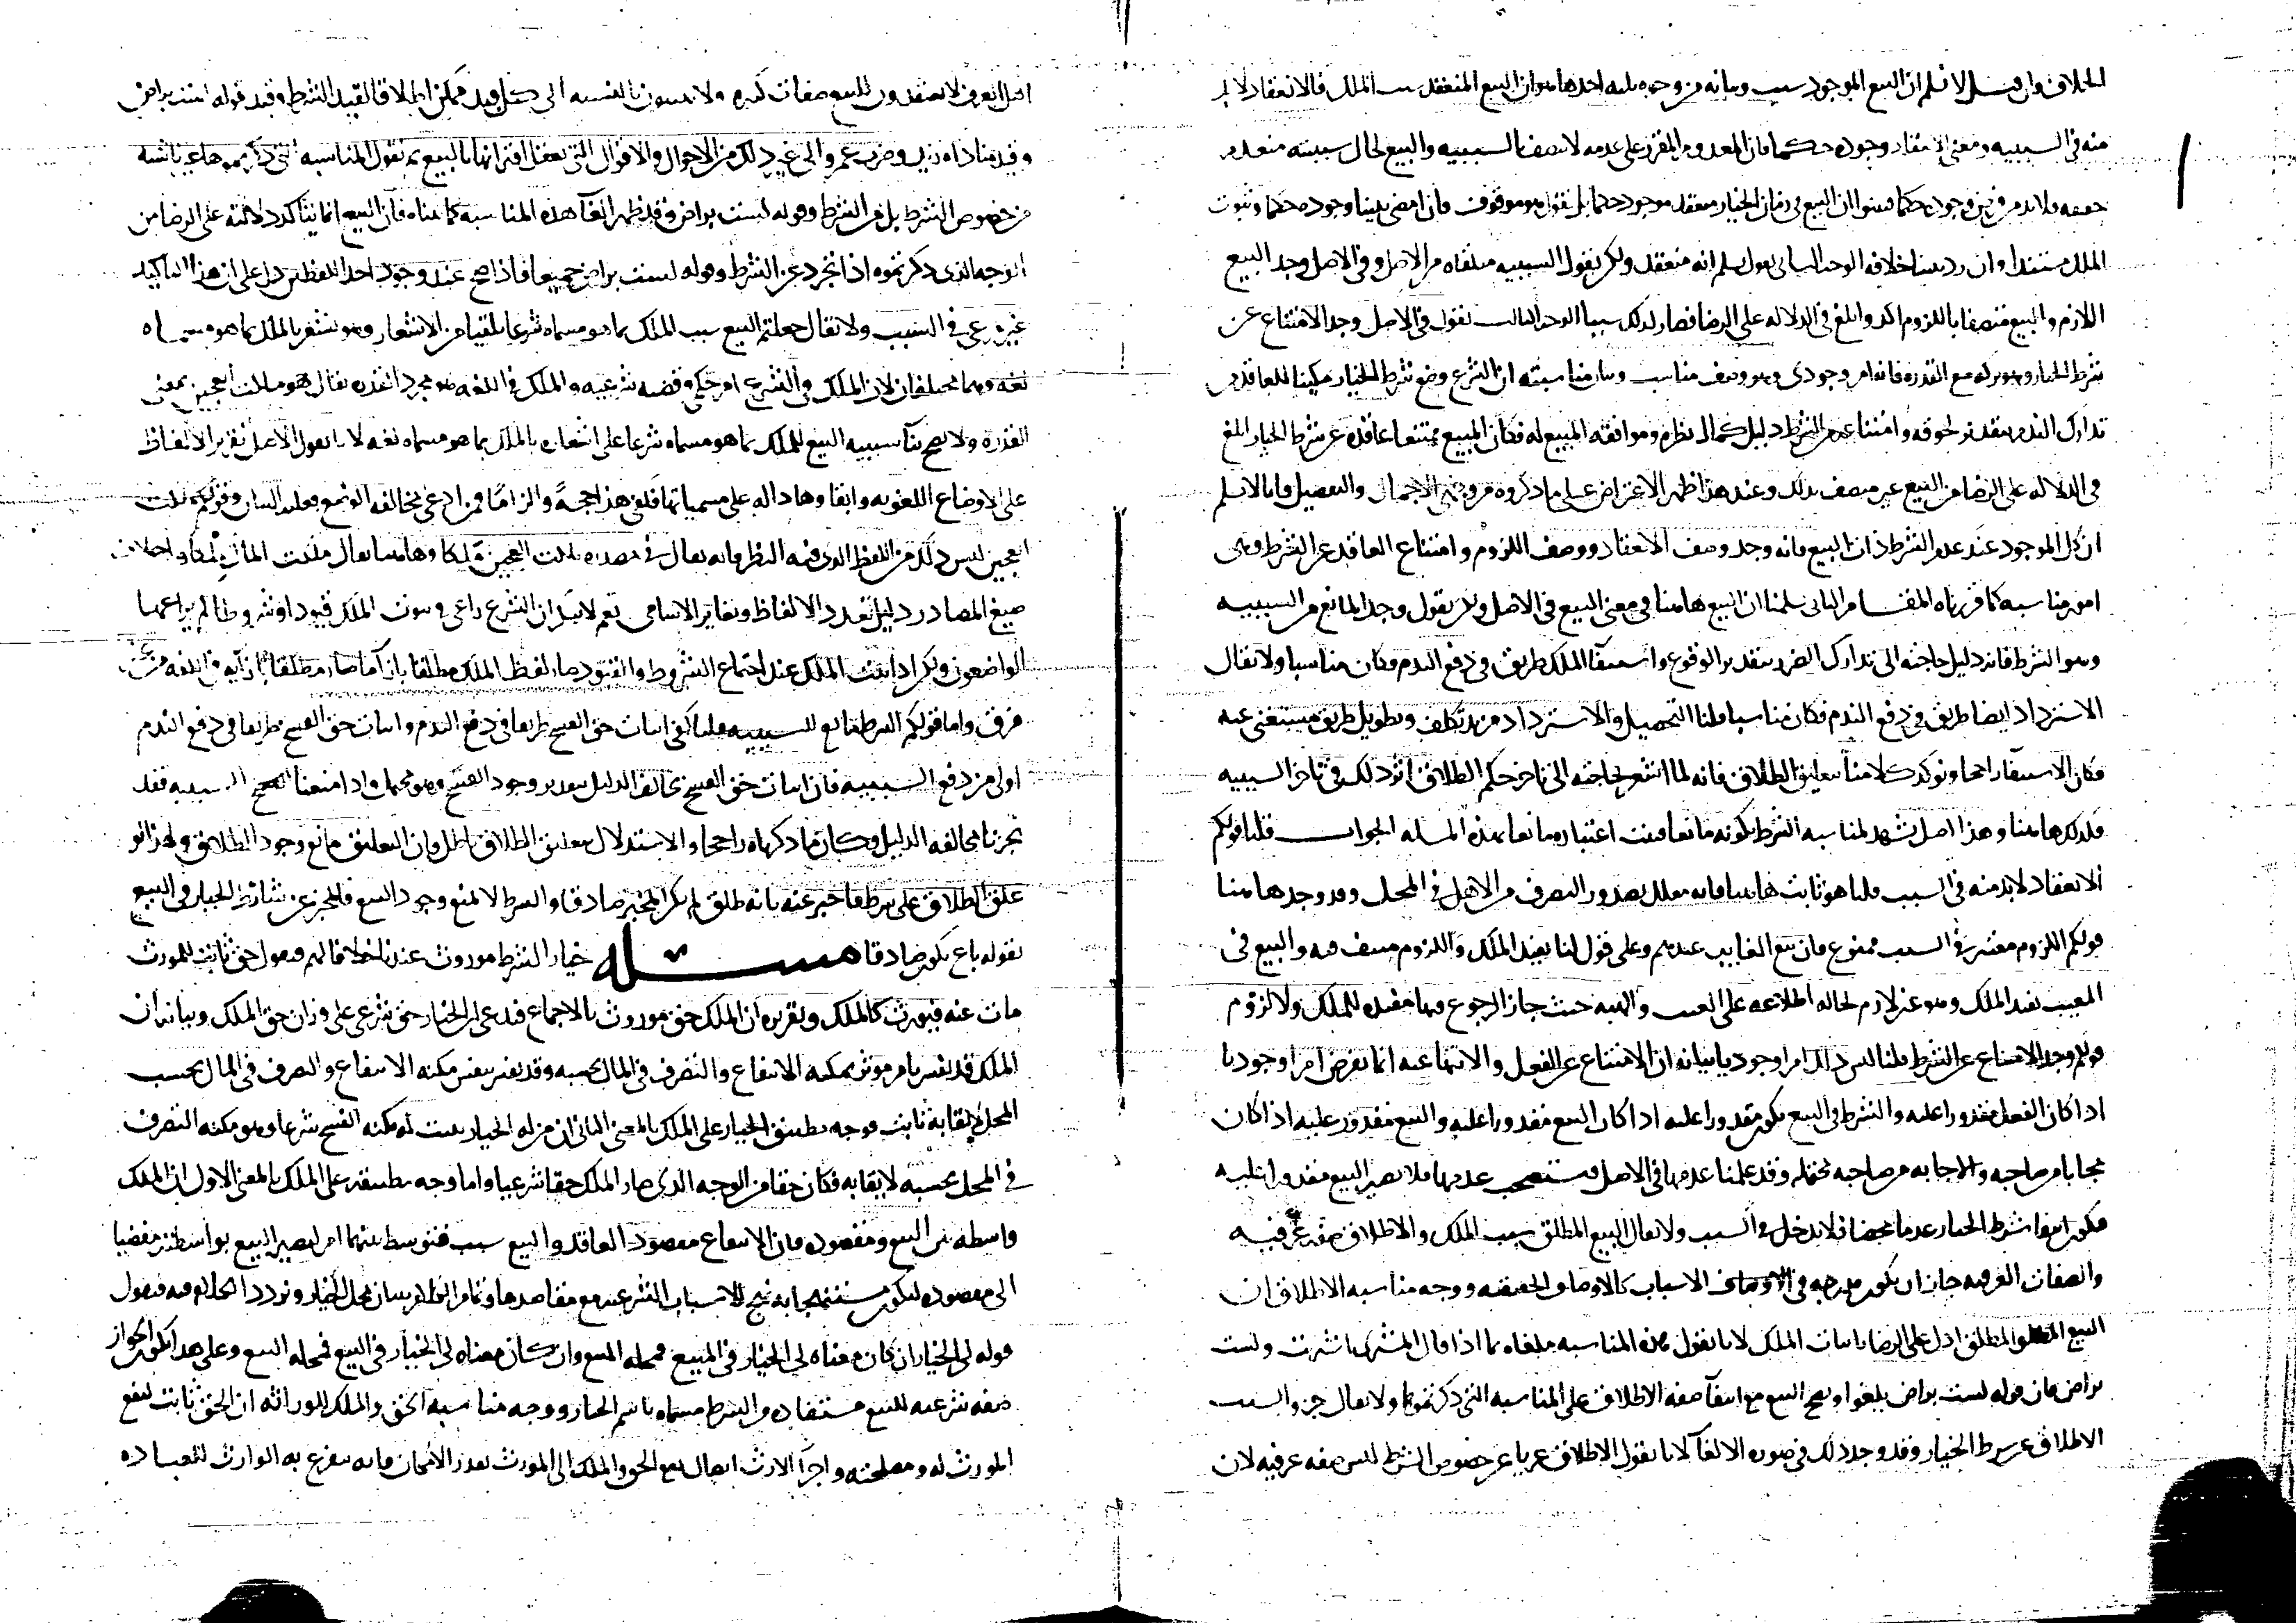 الخلاف وان قيل لا نسلم ان البيع الموجود سبب وبيانه من وجوه ثلثه احدها هو ان البيع المنعقد سبب الملك فالانعقاد لا بد
منه في السببيه ومعنى الانعقاد وجوده حكما فان المعدوم المقرر على عدمه لا يتصف بالسببيه والبيع لحال سببيته منعدم
حقيقه فلا بد من وجوده حكما ان البيع في زمان الخيار منعقد موجود حكما بل نقول هو موقوف فان امضى بينا وجوده حكما وثبوت
الملك مستندا وان رد بينا خلافه الوجه الثاني نقول نسلم انه منعقد ولكن نقول السببيه متلقاه من الاصل وفي الاصل وجد البيع
اللازم والبيع متصفا باللزوم اكد وابلغ في الدلاله على الرضا فصار لذلك سببا الوجه الثالث نقول في الاصل وجد الامتناع عن
شرط الخيار وهو تركه مع القدره فانه امر وجودي وهو وصف مناسب وبيان مناسبته ان الشرع وضع شرط الخيار تمكينا للعاقد من
تدارك الندم بتقدير لحوقه وامتناعه عن الشرط دليل كمال نظره وموافقه المبيع له فكان المبيع ممتنعا عاقده عن شرط الخيار ابلغ
في الدلاله على الرضا من البيع غير متصف بذلك وعند هذا ظهر الاعتراض على ما ذكروه من وجهي الاجمال والتفصيل فانا لا نسلم
ان كل الموجود عند عدم الشرط ذات البيع فانه وجد وصف الانعقاد ووصف اللزوم وامتناع العاقد عن الشرط وهي
امور مناسبه كما قررناه المقام الثاني سلمنا ان البيع هاهنا في معنى البيع في الاصل ولكن نقول وجد المانع من السببيه
وهو الشرط فانه دليل حاجته الى تدارك الضرر بتقدير الوقوع واستبقا الملك طريق في دفع الندم فكان مناسبا ولا يقال
الاسترداد ايضا طريق في دفع الندم فكان مناسبا قلنا التحصيل والاسترداد مزيد تكلف وتطويل طريق مستغنى عنه
فكان الاستبقا راجحا ونوكد كلامنا بتعليق الطلاق فانه لما اشعر بحاجته الى تاخر حكم الطلاق اثر ذلك في تاخر السببيه
فكذلك هاهنا وهذا اصل شهد لمناسبه الشرط بكونه مانعا فيثبت اعتباره مانعا بهذه المسله الجواب قلنا قولكم
الانعقاد لا بد منه في السبب قلنا هو ثابت هاهنا فانه معلل بصدور التصرف من الاهل في المحل وقد وجد هاهنا
قولكم اللزوم معتبر في السبب ممنوع فان بيع الغايب عندهم وعلى قول لنا يفيد الملك واللزوم منتف فيه والبيع في
المعيب يفيد الملك وهو غير لازم لحاله اطلاعه على العيب والهبه حيث جاز الرجوع فيها مفيده للملك ولا لزوم
قولهم وجد الامتناع عن الشرط قلنا ليس ذلك امرا وجوديا بيانه ان الامتناع عن الفعل والانتها عنه انما يفرض امرا وجوديا
اذا كان الفعل مقدورا عليه والشرط في البيع يكون مقدورا عليه اذا كان البيع مقدورا عليه والبيع مقدور عليه اذا كان
مجابا من صاحبه والاجابه من صاحبه محتمله وقد علمنا عدمها في الاصل فيستصحب عدمها فلا يصير البيع مقدورا عليه
فيكون انتفا شرط الخيار عدما محضا فلا يدخل في السبب ولا يقال البيع المطلق سبب الملك والاطلاق صفه عرفيه
والصفات العرفيه جاز ان تكون مدرجه في الاسباب كالاوصاف الحقيقيه ووجه مناسبه الاطلاق ان
البيع المطلق ادل على الرضا باثبات الملك لانا نقول هذه المناسبه ملغاه بما اذا قال المشتري اشتريت ولست
براض فان قوله لست براض يلغوا ويصح البيع مع انتفا صفه الاطلاق على المناسبه التي ذكرتموها ولا يقال جزو السبب
الاطلاق عن شرط الخيار وقد وجد ذلك في صوره الالغا لانا نقول الاطلاق عريا عن خصوص الشرط ليس صفه عرفيه لان
اهل العرف لا يعتقدون للبيع صفات كثيره ولا بالنسبه الى كل قيد ممكن اطلاقا لقيد الشرط وقيد قوله لست براض
وقيد مناداه زيد وضرب عمرو الى غير ذلك من الاحوال والاقوال التي يتفق اقترانها بالبيع ثم نقول المناسبه التي ذكرتموها غير ناشيه
من خصوص الشرط بل من الشرط وقوله لست براض وقد ظهر الغا هذه المناسبه كما بيناه فان البيع انما يتاكد دلالته على الرضا من
الوجه الذي ذكرتموه اذا تجرد عن الشرط وقوله لست براض جميعا فاذا صح عند وجود احد اللفظين دل على ان هذا التاكيد
غير مرعي في السبب ولا يقال جعلتم البيع سبب الملك بما هو مسماه شرعا تلقيا من الاشعار وهو مشعر بالملك بما هو مسماه
لغه وهما مختلفان لان الملك في الشرع امر حكمي وقضيه شرعيه والملك في اللغه هو مجرد القدره يقال هو ملكت العجين بمعنى
القدره ولا يصح بنا سببيه البيع للملك بما هو مسماه شرعا على اشعاره بالملك بما هو مسماه لغه لانا نقول الاصل تقرير الالفاظ
على الاوضاع اللغويه وابقاوها داله على مسمياتها فكفى هذا حجة والزاما فمن ادعى مخالفه الوضع فعليه البيان وقولكم ملكت
العجين ليس ذلك من اللفظ الذي فيه النظر فانه يقال في مصدره ملكت العجين ملكا وهاهنا يقال ملكت المال ملكا واختلاف
صيغ المصادر دليل تعدد الالفاظ وتغاير الاسامي نعم لا ننكر ان الشرع راعى في ثبوت الملك قيودا وشروطا لم يراعها
الواضعون ولكن اذا ثبت الملك عند اجتماع الشروط والقيود صار لفظ الملك مطلقا بازا ما صار مطلقا بازايه في اللغه من غير
فرق واما قولكم الشرط مانع للسببيه قلنا كفى اثبات حق الفسخ طريقا في دفع الندم واثبات حق الفسخ طريقا في دفع الندم
اولى من دفع السببيه فان اثبات حق الفسخ يخالف الدليل بتقدير وجود الفسخ وهو محتمل واذا منعنا السببيه فقد
نجزنا مخالفه الدليل وكان ما ذكرناه راجحا والاستدلال بتعليق الطلاق باطل فان التعليق مانع وجود الطلاق ولهذا لو
علق الطلاق على شرط فاخبر عنه بانه طلق لم يكن المخبر صادقا والشرط لا يمنع وجود البيع فالمخبر عن شارط الخيار في البيع
بقوله باع يكون صادقا مسله خيار الشرط موروث عندنا خلافا لهم فنقول حق ثابت للمورث
مات عنه فيورث كالملك وتقريره ان الملك حق موروث بالاجماع فندعي ان الخيار حق شرعي على وزان حق الملك وبيانه ان
الملك قد يفسر بامر موثر يمكنه الانتفاع والتصرف في المال بحسبه وقد يفسر بنفس مكنه الانتفاع والتصرف في المال بحسب
المحل لايقا به ثابت فوجه تطبيق الخيار على الملك بالمعنى الثاني ان من له الخيار يثبت له مكنه الفسخ شرعا وهو مكنه التصرف
في المحل بحسبه لايقا به فكان حقا من الوجه الذي صار الملك حقا شرعيا واما وجه تطبيقه على الملك بالمعنى الاول ان الملك
واسطه بين البيع ومقصوده فان الانتفاع مقصود العاقد والبيع سبب فتوسط بينهما امر ليصير البيع بواسطته مفضيا
الى مقصوده ليكون مستنتجا به نهج الاسباب الشرعيه مع مقاصدها وتمام النظر ببيان محل الخيار ونردد الكلام فيه فنقول
قوله لي الخيار ان كان معناه لي الخيار في المبيع فمحله المبيع وان كان معناه لي الخيار في البيع فمحله البيع وعلى هذا يكون الجواز
صفه شرعيه للبيع مستفاده من الشرط مسماه باسم الخيار ووجه مناسبه الحق والملك للوراثه ان الحق ثابت لنفع
المورث له ومصلحته واجرا الارث ايصال نفع الحق والملك الى المورث بقدر الامكان فانه يتفرغ به الوارث لتعباده